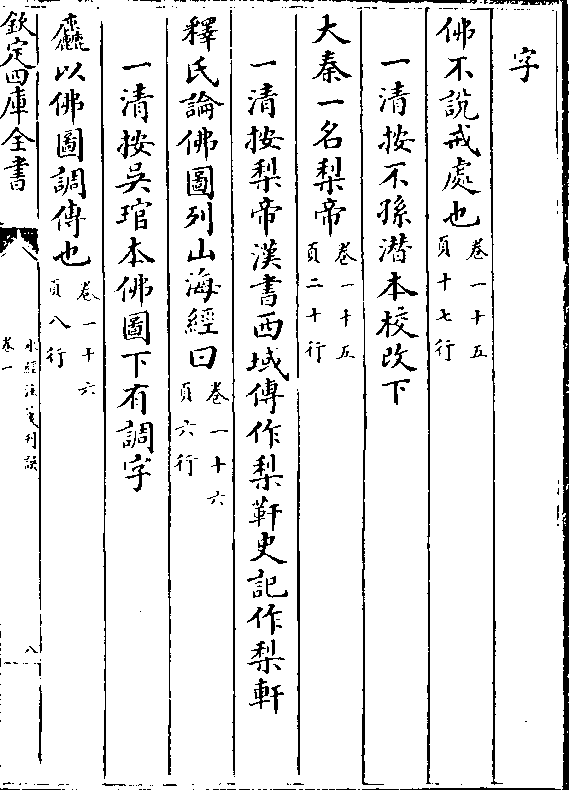 字
佛不說戒處也卷一十五頁十七行
一清按不孫潛本校改下
大秦一名梨帝卷一十五頁二十行
一清按梨帝漢書西域傳作梨靬史記作梨軒
釋氏論佛圖列山海經曰卷一十六頁六行
一清按吳琯本佛圖下有調字
麤以佛圖調傳也卷一十六頁八行
欽定四庫全書
水經注箋刊誤
卷一
八